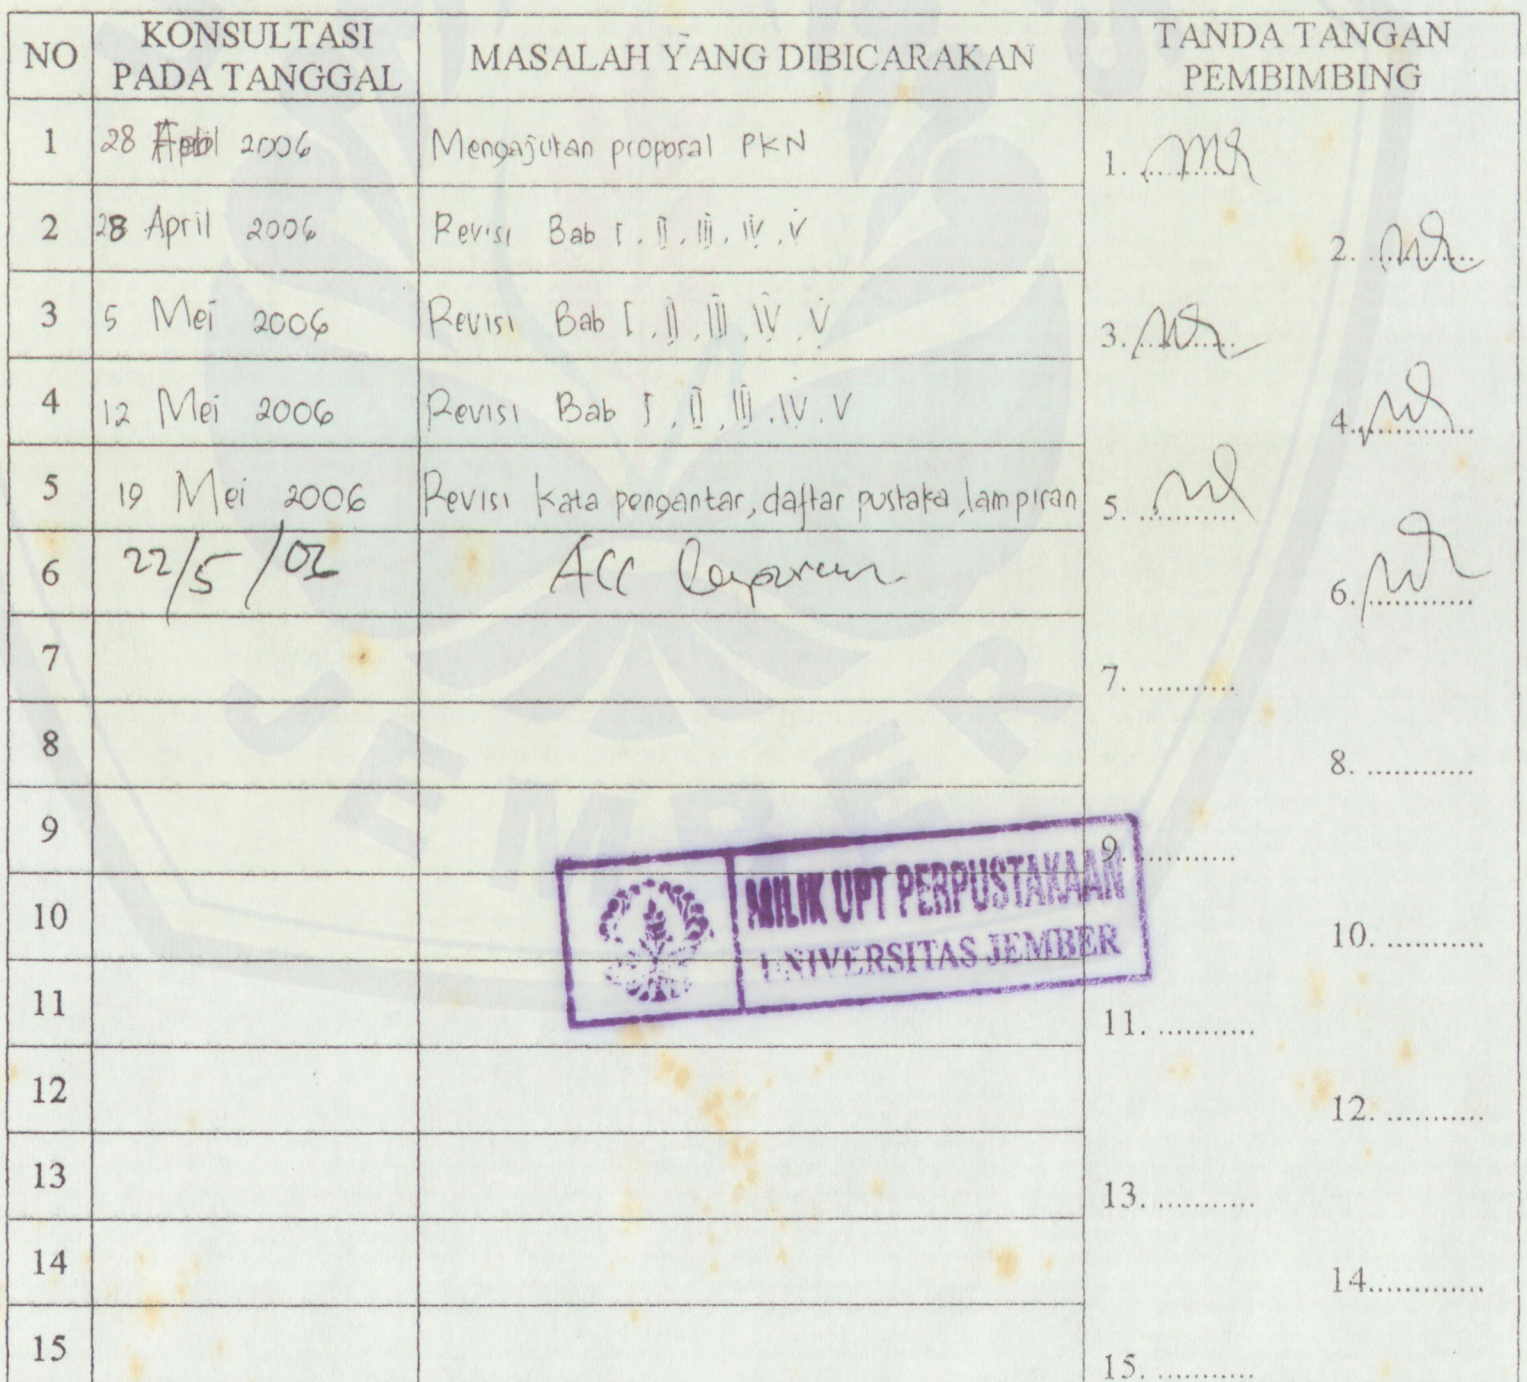 NO KONSULTASI PADA TANGGAL MASALAH YANG DIBICARAKAN TANDA TANGAN PEMBIMBING
1 28 2006 Mengajukan proposal PKN 1. ...........
2 28 April 2006 Revisi Bab I, II, III, IV, V 2. ...........
3 5 Mei 2006 Revisi Bab I, II, III, IV, V 3. ...........
4 12 Mei 2006 Revisi Bab I, II, III, IV, V 4. ...........
5 19 Mei 2006 Revisi kata pengantar, daftar pustaka, lampiran 5. ...........
6 22/5/06 ACC Laporan 6. ...........
7 7. ...........
8 8. ...........
9 9. ...........
MILIK UPT PERPUSTAKAAN
UNIVERSITAS JEMBER
10 10. ...........
11 11. ...........
12 12. ...........
13 13. ...........
14 14. ...........
15 15. ...........
JEMBER